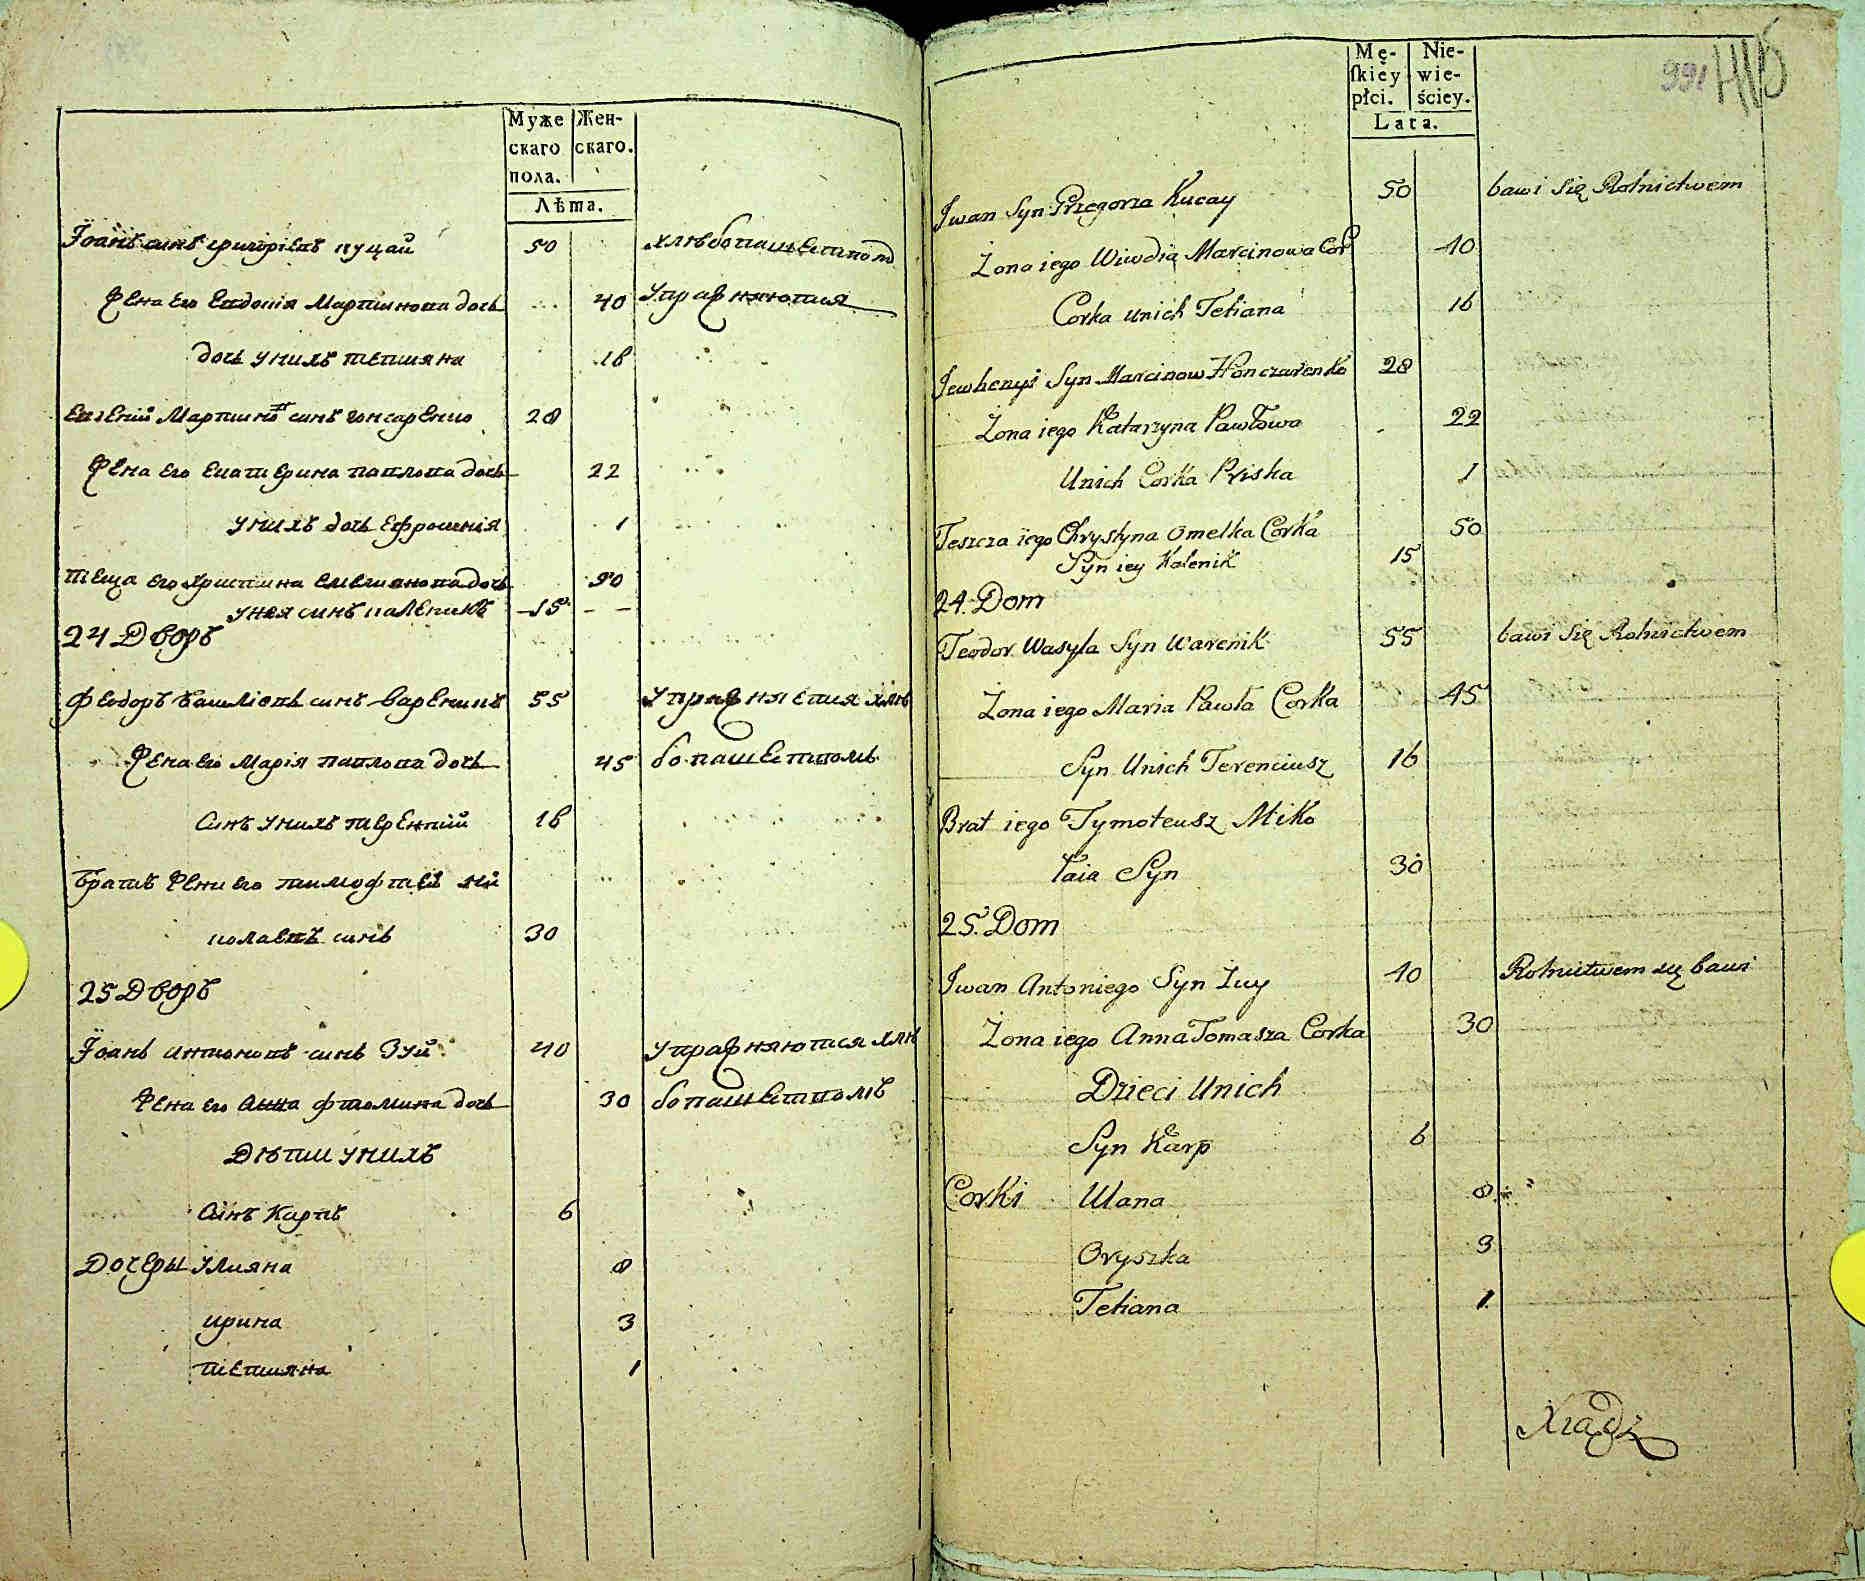 Муже
скаго
пола.
Жен-
скаго.
Лѣта.
Іоанъ синъ григоріевъ куцай 50 хлѣбопашествомъ
Жена его Евдокія Мартинова дочь 40 упражняются
дочь унихъ татияна 16
Евгеній Мартиновъ синъ гончаренко 28
Жена его Екатерина павлова дочь 22
унихъ дочь Ефросинія 1
теща его христина емелиянова дочь 50
унея синъ каленикъ 15
24 Дворъ
Феодоръ василіевъ синъ вареникъ 55 упражняется хлѣ
Жена его Марія павлова дочь 45 бопашествомъ
Синъ унихъ терентий 16
братъ жени его тимофтей ми
колаевъ синъ 30
25 Дворъ
Іоанъ антоновъ синъ Зуй 40 упражняются хлѣ
Жена его анна фтомина дочь 30 бопашествомъ
Дѣти унихъ
Синъ Карпъ 6
Дочеры улияна 8
ирина 3
татияна 1
Mę-
skiey
płci.
Nie-
wie-
ściey.
Lata.
991
Jwan Syn Grzegorza Kucay 50 bawi się Rolnictwem
Żona iego Wiwdia Marcinowa Cor 40
Corka unich Tetiana 16
Jewhenyi Syn Marcinow Honczarenko 28
Żona iego Katarzyna Pawłowa 22
Unich Corka Priska 1
Teszcza iego Chrystyna Omelka Corka 50
Syn iey Kalenik 15
24. Dom
Teodor Wasyla Syn Warenik 55 bawi się Rolnictwem
Żona iego Maria Pawła Corka 45
Syn Unich Terenciusz 16
Brat iego Tymoteusz Miko
łaia Syn 30
25. Dom
Jwan Antoniego Syn Zuy 40 Rolnictwem się bawi
Żona iego Anna Tomasza Corka 30
Dzieci Unich
Syn Karp 6
Corki Ulana 8
Oryszka 3
Tetiana 1